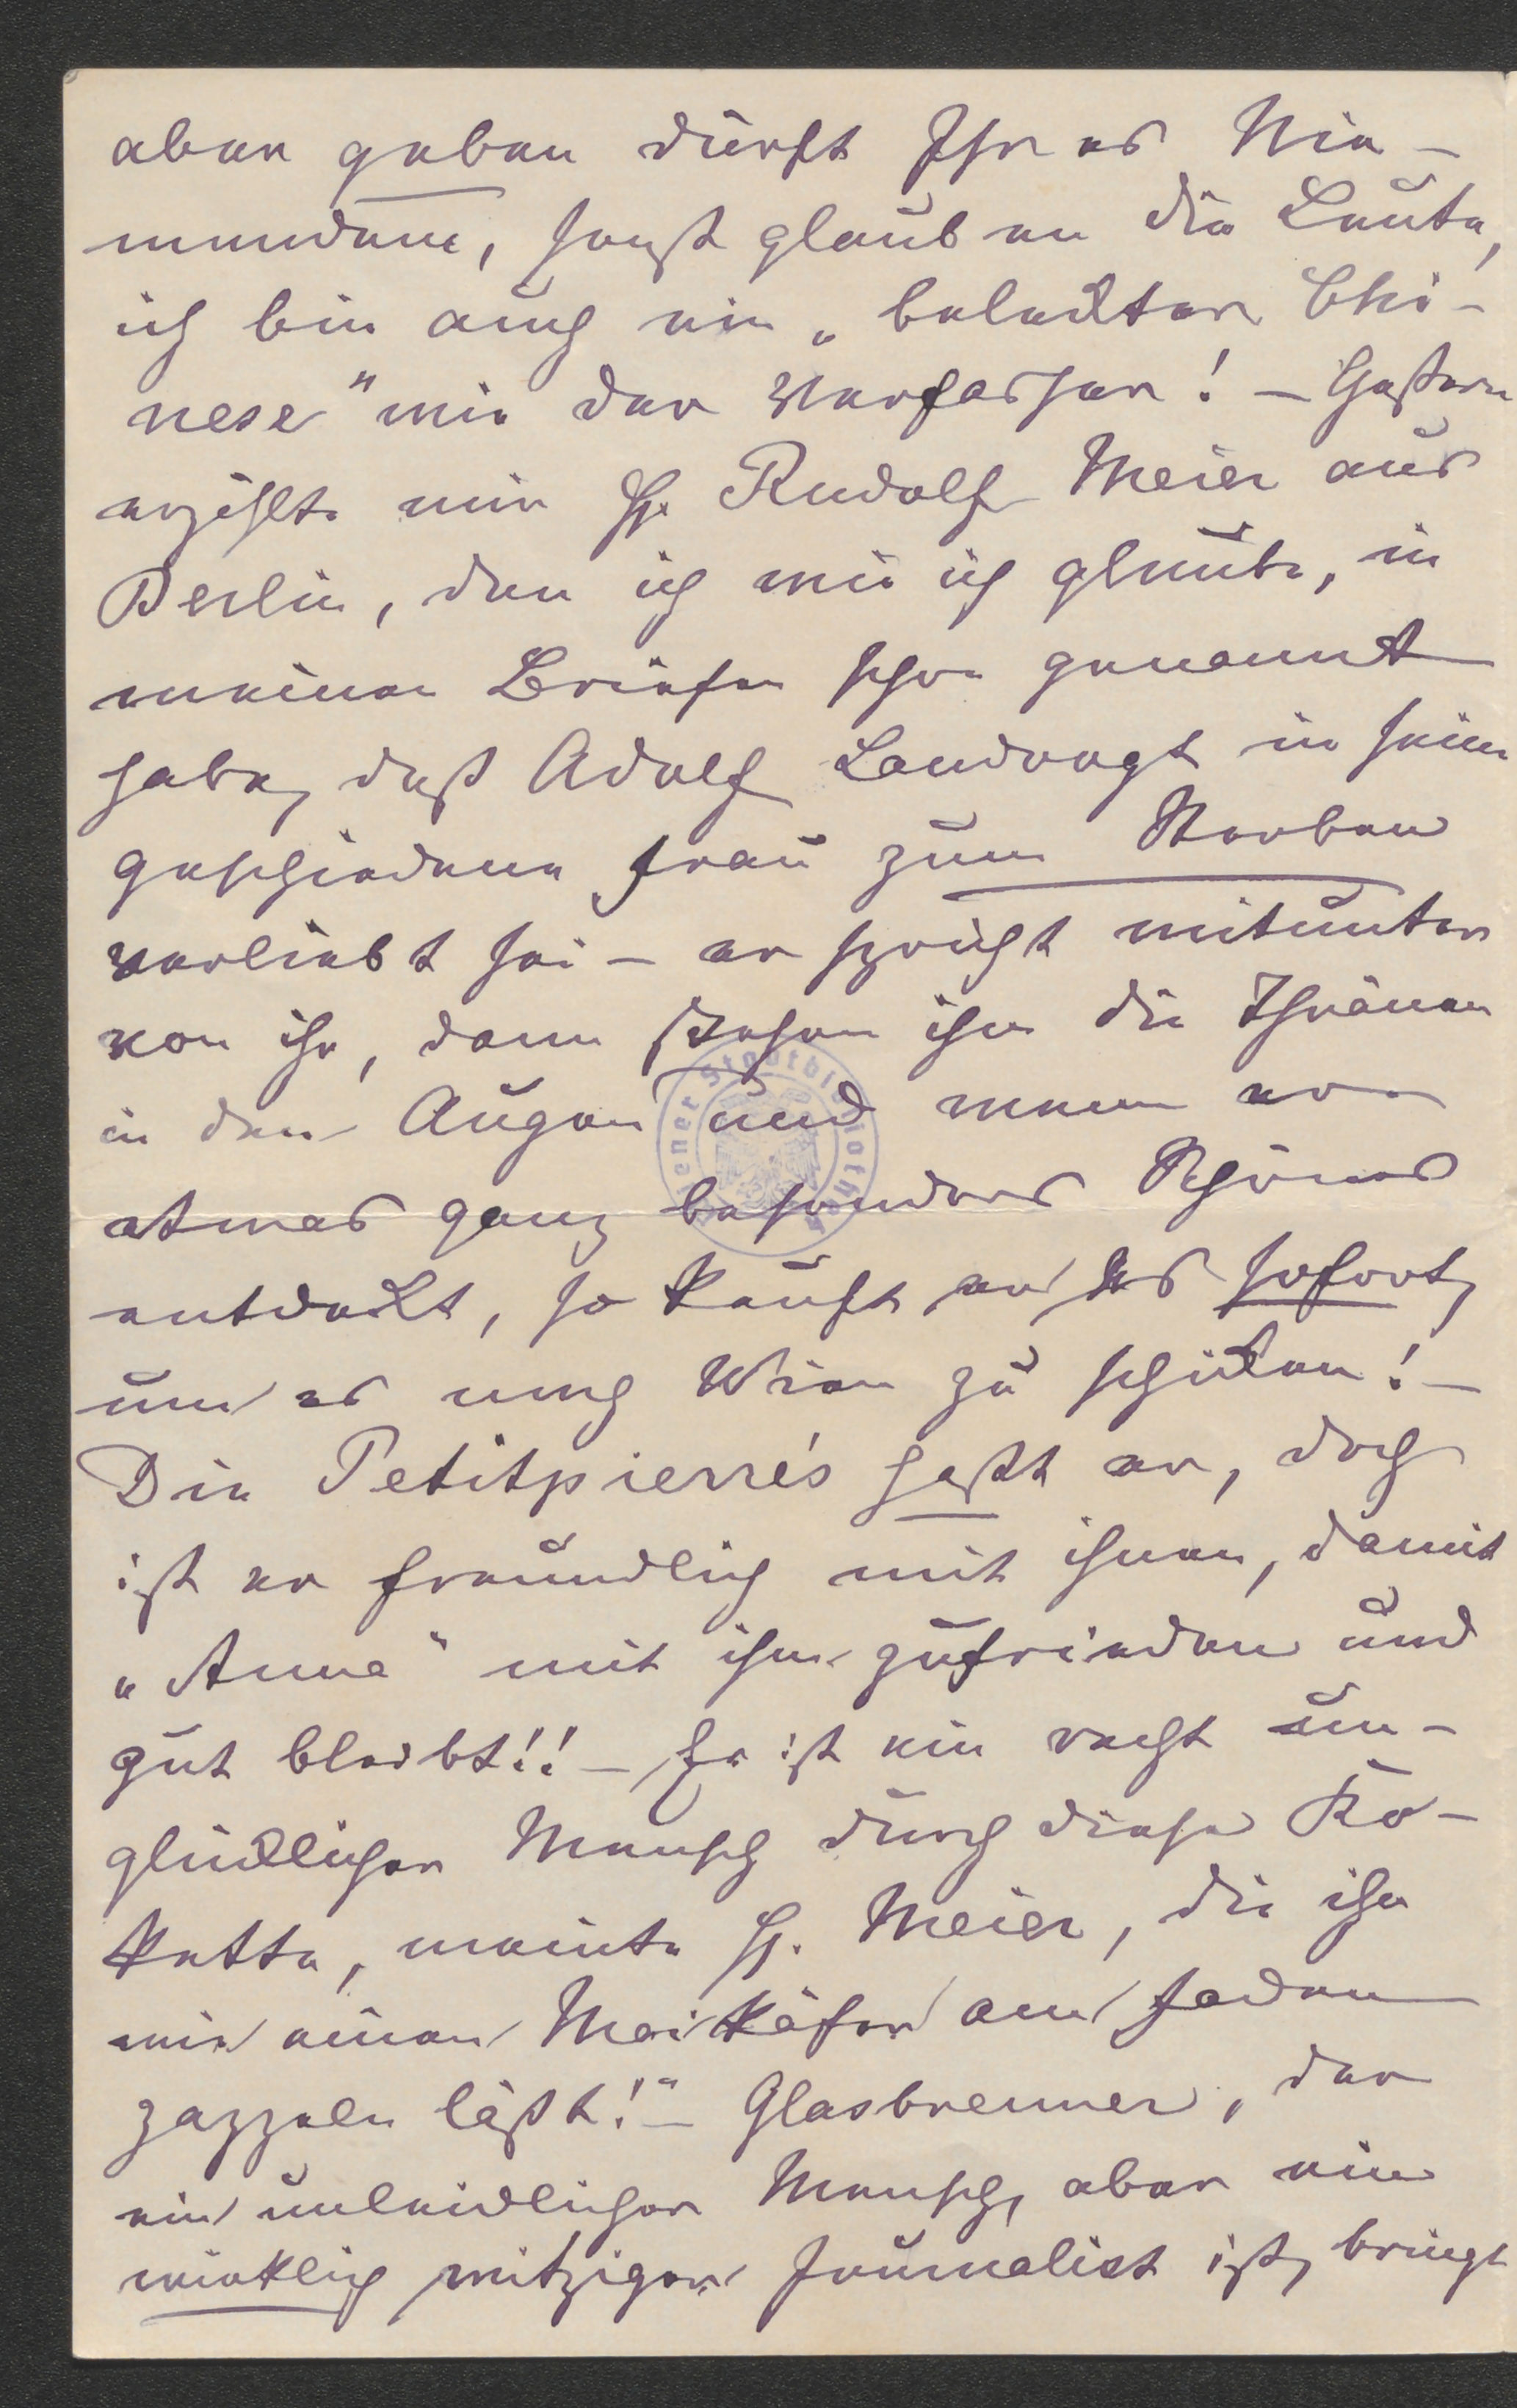 aber geben dürft Ihr es Nie-
mandem, sonst glauben die Leute,
ich bin auch ein „beleckter Chi-
nese" wie der Verfasser! – Gestern
erzählte mir H. Rudolf Meier aus
Berlin, den ich wie ich glaube, in
meinen Briefen schon genannt
habe, daß Adolf Landvogt in seine
geschiedene Frau zum Sterben
verliebt sei – er spricht mitunter
von ihr, dann stehen ihm die Thränen
in den Augen und wenn er
etwas ganz besonders Schönes
entdeckt, so kauft er es sofort,
um es nach Wien zu schicken! –
Die Petitpierre's haßt er, doch
ist er freundlich mit ihnen, damit
„Anna" mit ihm zufrieden und
gut bleibt!! – Er ist ein recht un-
glücklicher Mensch durch diese Ko-
kette, meinte H. Meier, die ihn
wie einen Maikäfer am Faden
zappeln läßt!" – Glasbrenner, der
ein unleidlicher Mensch, aber ein
wirklich witziger Journalist ist, bringt
Wiener Stadtbibliothek